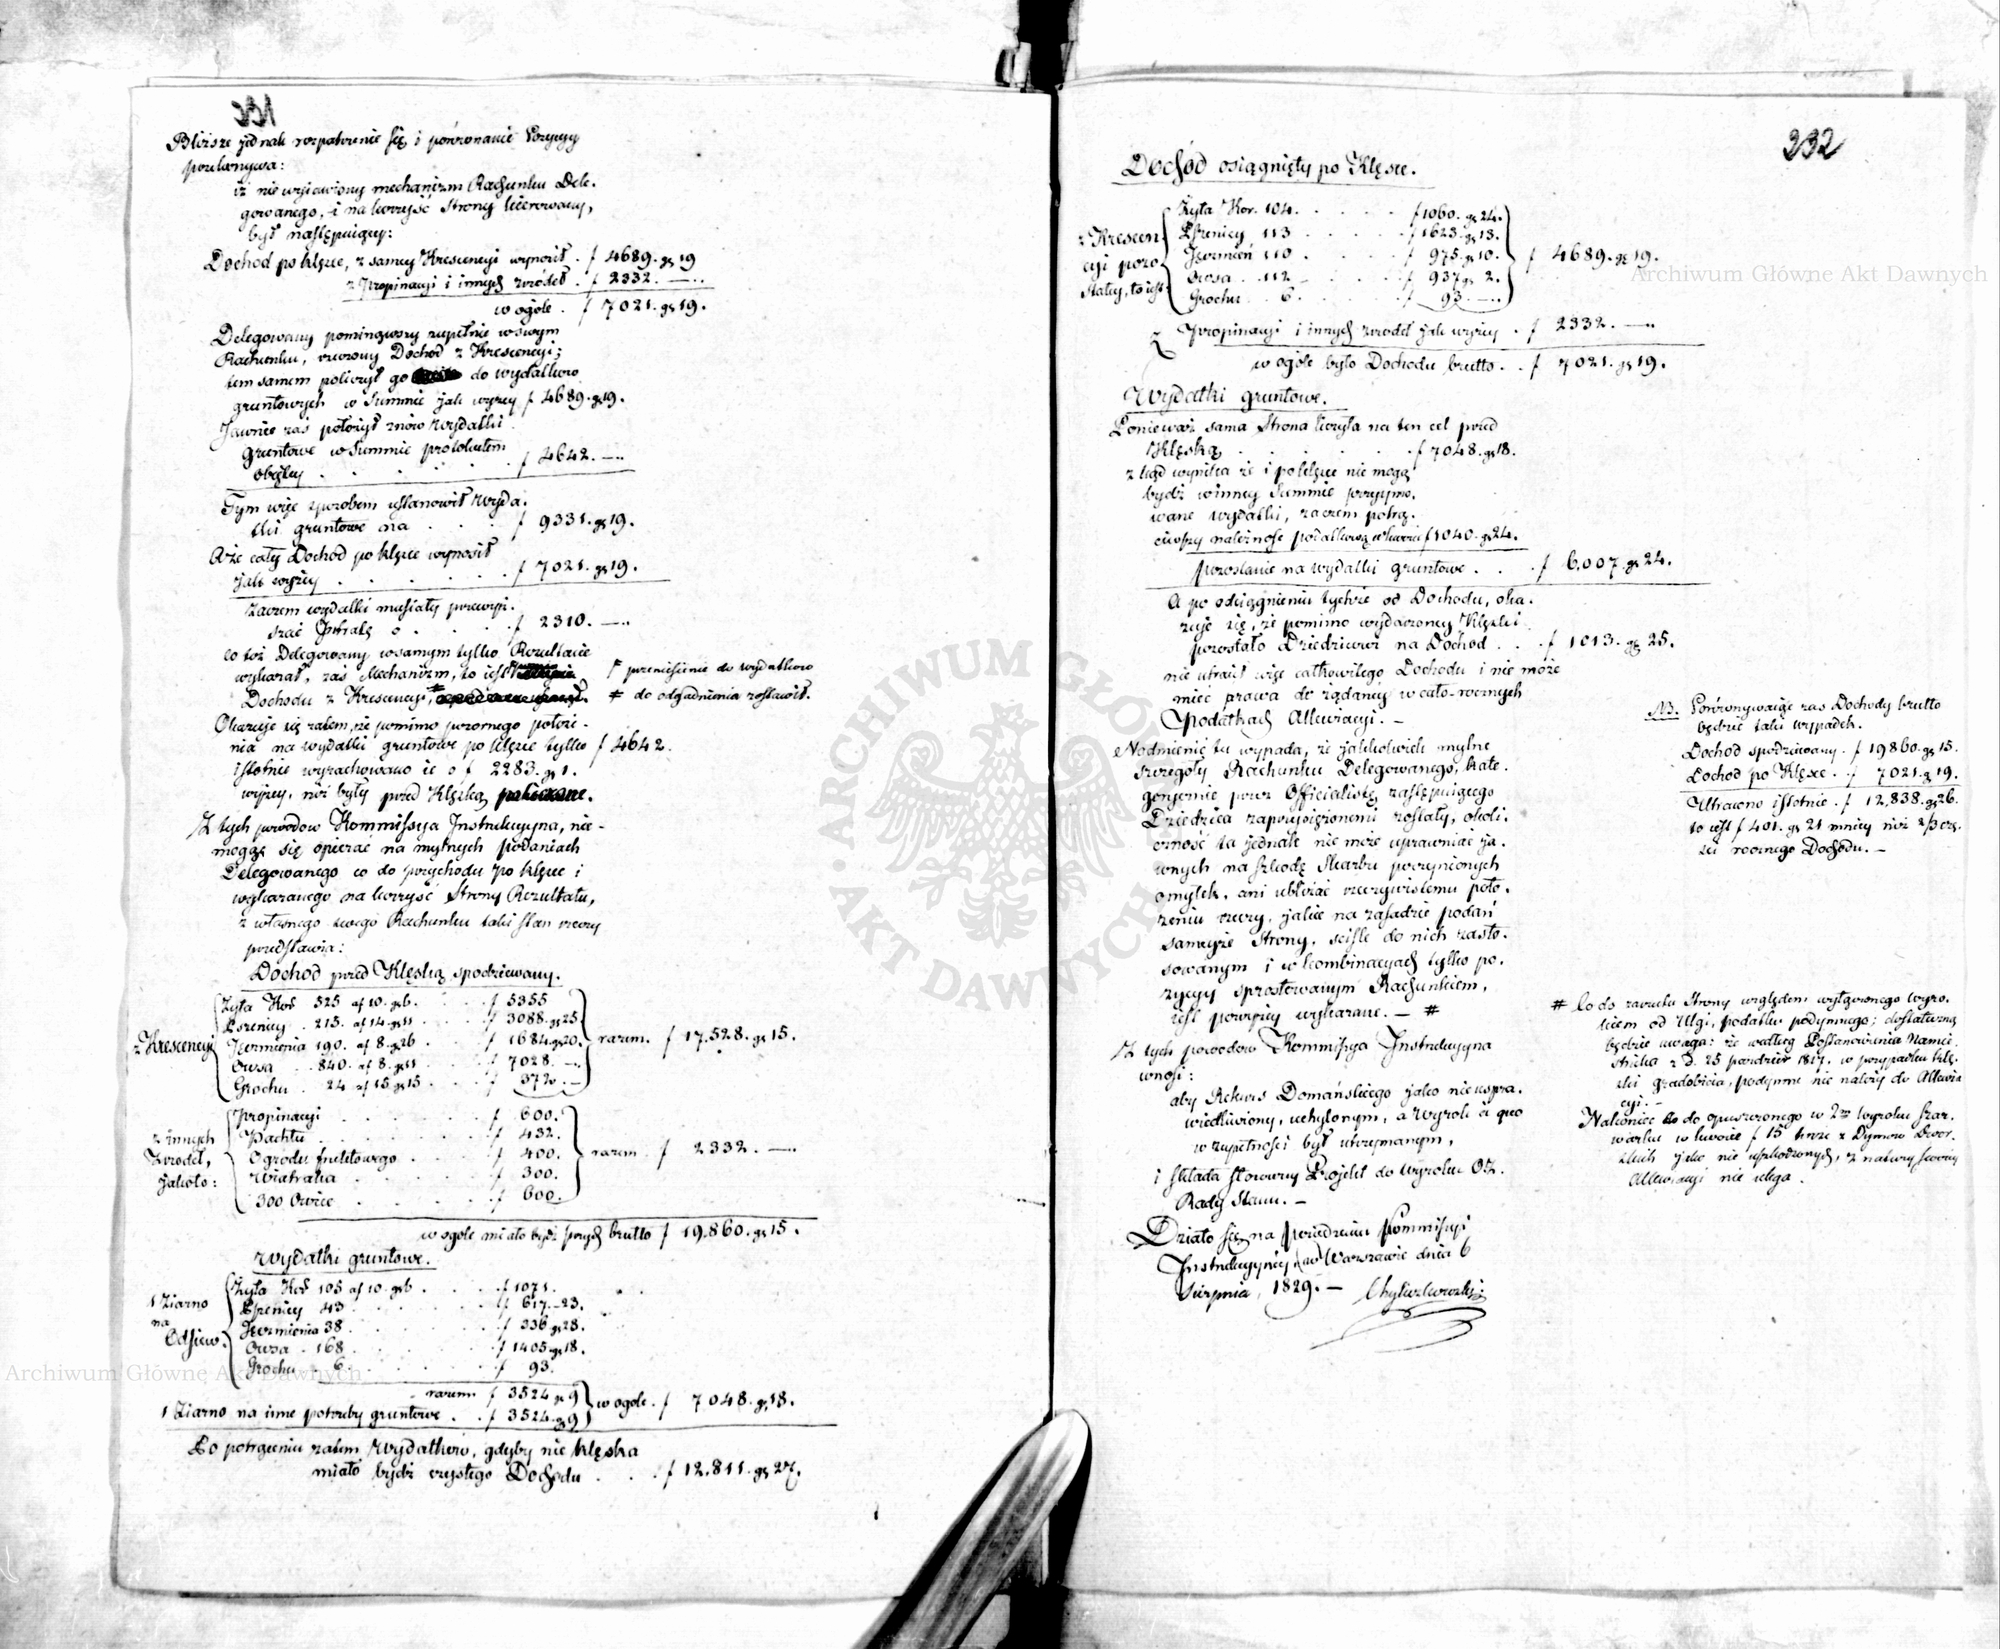 Bliższe jednak rozpatrzenie się i porównanie Pozycyi
przekonywa:
iż nie wyjawiony mechanizm Rachunku Dele-
gowanego, i na korzyść Strony kierowany,
był następujący:
Dochod po klęsce, z samey Krescencyi wynosił . f 4689. gr 19
z Propinacyi i innych źródeł . f 2332. —
w ogóle . f 7021. gr 19.
Delegowany pominąwszy zupełnie w swym
Rachunku, rzeczony Dochod z Krescencyi;
tem samem policzył go do wydatków
gruntowych w Summie jak wyżey f 4689. gr 19.
Jawnie zaś położył znów Wydatki
gruntowe w Summie protokułem
obiętey . . . . f 4642. —
Tym więc sposobem ustanowił Wyda-
tki gruntowe na . . . f 9331. gr 19.
A że cały Dochod po klęsce wynosił
jak wyżey . . . . . f 7021. gr 19.
zaczem wydatki musiały przewyż-
szać Intratę o . . . . f 2310. —
co też Delegowany w samym tylko Rezultacie
wykazał, zaś Mechanizm, to iest
Dochodu z Krescencyi, #
przeniesienie do wydatków
# do odgadnienia zostawił.
Okazuje się zatem, iż pomimo pozornego położe-
nia na wydatki gruntowe po klęsce tylko f 4642.
istotnie wyrachowano ie o f 2283. gr 1.
wyżey, niż były przed Klęską
Z tych powodow Kommissya Instrukcyjna, nie-
mogąc się opierać na mylnych podaniach
Delegowanego co do przychodu po klęsce i
wykazanego na korzyść Strony Rezultatu,
z własnego swego Rachunku taki stan rzeczy
przedstawia:
Dochod przed Klęską spodziewany.
z Krescencyi
Żyta Kor 525 af 10. gr 6. . . . f 5355
Pszenicy . 215. af 14. gr 11 . . . f 3088. gr 25
Jęczmienia 190. af 8. gr 26 . . f 1684. gr 20.
Owsa . . 840. af 8. gr 11 . . . f 7028. —
Grochu . 24 af 15. gr 15 . . . f 372. —
razem . f 17.528. gr 15.
z innych
Źrodeł,
jakoto:
Propinacyi . . . . f 600.
Pachtu . . . . f 432.
Ogrodu fruktowego . . . f 400.
Wiatraka . . . . f 300.
300 Owiec . . . . f 600.
razem . f 2332. —
w ogóle miało bydź przych brutto f 19.860. gr 15.
Wydatki gruntowe.
1 Ziarno
na
Odsiew.
Żyta Kor 105 af 10. gr 6 . . . f 1071.
Pszenicy 43 . . . . f 617. — 23.
Jęczmienia 38 . . . . f 336 gr 28.
Owsa . 168 . . . . f 1405. gr 18.
Grochu . 6 . . . . f 93.
razem . f 3524 gr 9
1 Ziarno na inne potrzeby gruntowe . . f 3524. gr 9
w ogóle . f 7048. gr 18.
Po potrąceniu zatem Wydatkow, gdyby nie klęska
miało bydź czystego Dochodu . . . f 12.811. gr 27.
232
Dochód osiągnięty po Klęsce.
z Krescen-
cyi pozo-
stałey, to iest
Żyta Kor. 104. . . . . f 1060. gr 24.
Pszenicy 113 . . . . f 1623. gr 13.
Jęczmień 110 . . . . f 975. gr 10.
Owsa . . 112 . . . . f 937 gr 2.
Grochu . . 6 . . . . f 93. —
f 4689. gr 19.
Z Propinacyi i innych źrodeł jak wyżey . f 2332. —
w ogóle było Dochodu brutto . . f 7021. gr 19.
Wydatki gruntowe.
Ponieważ sama Strona liczyła na ten cel przed
Klęską . . . . f 7048. gr 18.
z tąd wynika że i po klęsce nie mogą
bydź w inney Summie przyjmo-
wane wydatki, zaczem potrą-
ciwszy należność podatkową w kwocie f 1040. gr 24.
pozostanie na wydatki gruntowe . . . f 6.007. gr 24.
A po odciągnieniu tychże od Dochodu, oka-
zuje się, że pomimo wydarzoney Klęski
pozostało Dziedzicowi na Dochod . . . f 1013. gr 25.
nie utracił więc całkowitego Dochodu i nie może
mieć prawa do żądaney w cało-rocznych
Podatkach Allewiacyi. —
Nadmienić tu wypada, że jakkolwiek mylne
szczegóły Rachunku Delegowanego, kate-
gorycznie przez Officialistę zastępuiącego
Dziedzica zaprzysiężonemi zostały, okoli-
czność ta jednak nie może uprawniać ja-
wnych na szkodę Skarbu poczynionych
omyłek, ani ubliżać rzeczywistemu poło-
żeniu rzeczy, jakie na zasadzie podań
sameyże Strony, ściśle do nich zasto-
sowanym i w kombinacyach tylko po-
zycyy sprostowanym Rachunkiem,
iest powyżey wykazane. — #
Z tych powodow Kommissya Instrukcyjna
wnosi:
aby Rekurs Domańskiego jako nieuspra-
wiedliwiony, uchylonym, a Wyrok a quo
w zupełności był utrzymanym,
i składa stosowny Projekt do Wyroku
Rady Stanu. —
Działo się na posiedzeniu Kommissyi
Instrukcyjney w Warszawie dnia 6
Sierpnia, 1829. —
NB. Porównywaiąc zaś Dochody brutto
będzie taki wypadek.
Dochod spodziewany . f 19860. gr 15.
Dochod po Klęsce . f 7021. gr 19.
Utracono istotnie . f 12,838. gr 26.
to iest f 401. gr 21 mniey niż 2/3 czę-
ści rocznego Dochodu. —
# Co do zarzutu Strony względem wyłączonego Wyro-
kiem od Ulgi, podatku podymnego; dostateczną
będzie uwaga: że według Postanowienia Namie-
stnika z d. 25 paździer 1817. w przypadku klę-
ski gradobicia, podymne nie należy do Allewia-
cyi. —
Nakoniec co do opuszczonego w 2m Wyroku Szar-
warku w kwocie f 15 tenże z Dymow Dwor-
skich jako nie uszkodzonych, z natury swoiey
Allewiacyi nie ulega.